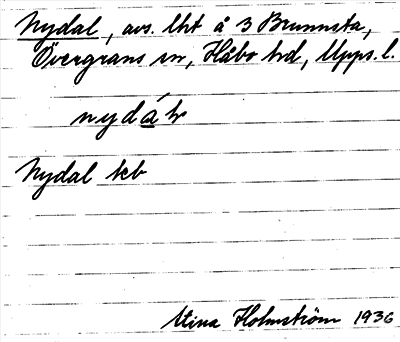 Nydal, avs. lht å 3 Brunnsta,
Övergrans sn, Håbo hd, Upps. l.
Nydal kb
Stina Holmström 1936